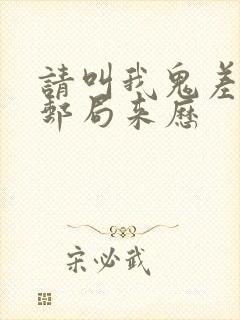 請叫我鬼差
郵局来歷
宋必武